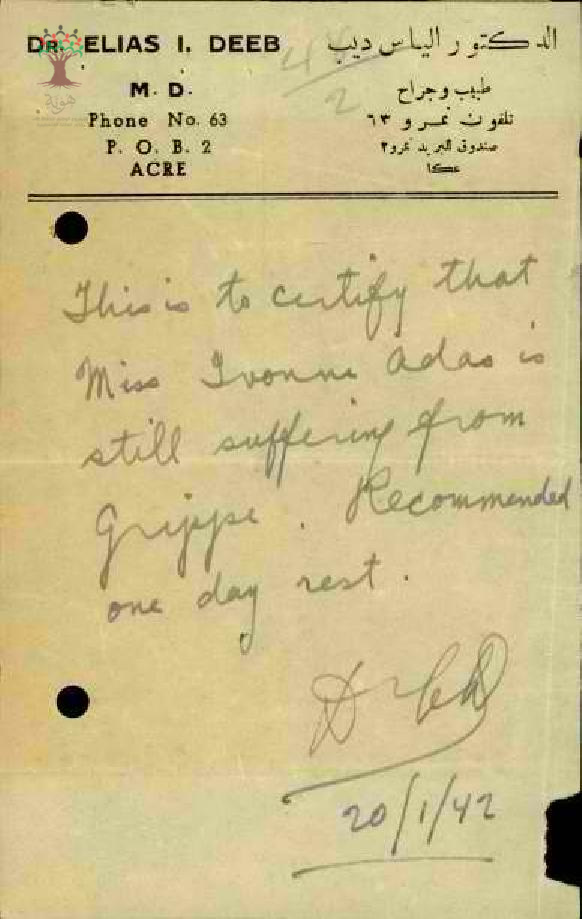 DR. ELIAS I. DEEB
M. D.
Phone No. 63
P. O. B. 2
ACRE
الدكتور الياس ديب
طبيب وجراح
تلفون نمرو ٦٣
صندوق البريد نمرو ٢
عكا
هوية
This is to certify that
Miss Ivonne Adas is
still suffering from
Grippe. Recommended
one day rest.
20/1/42